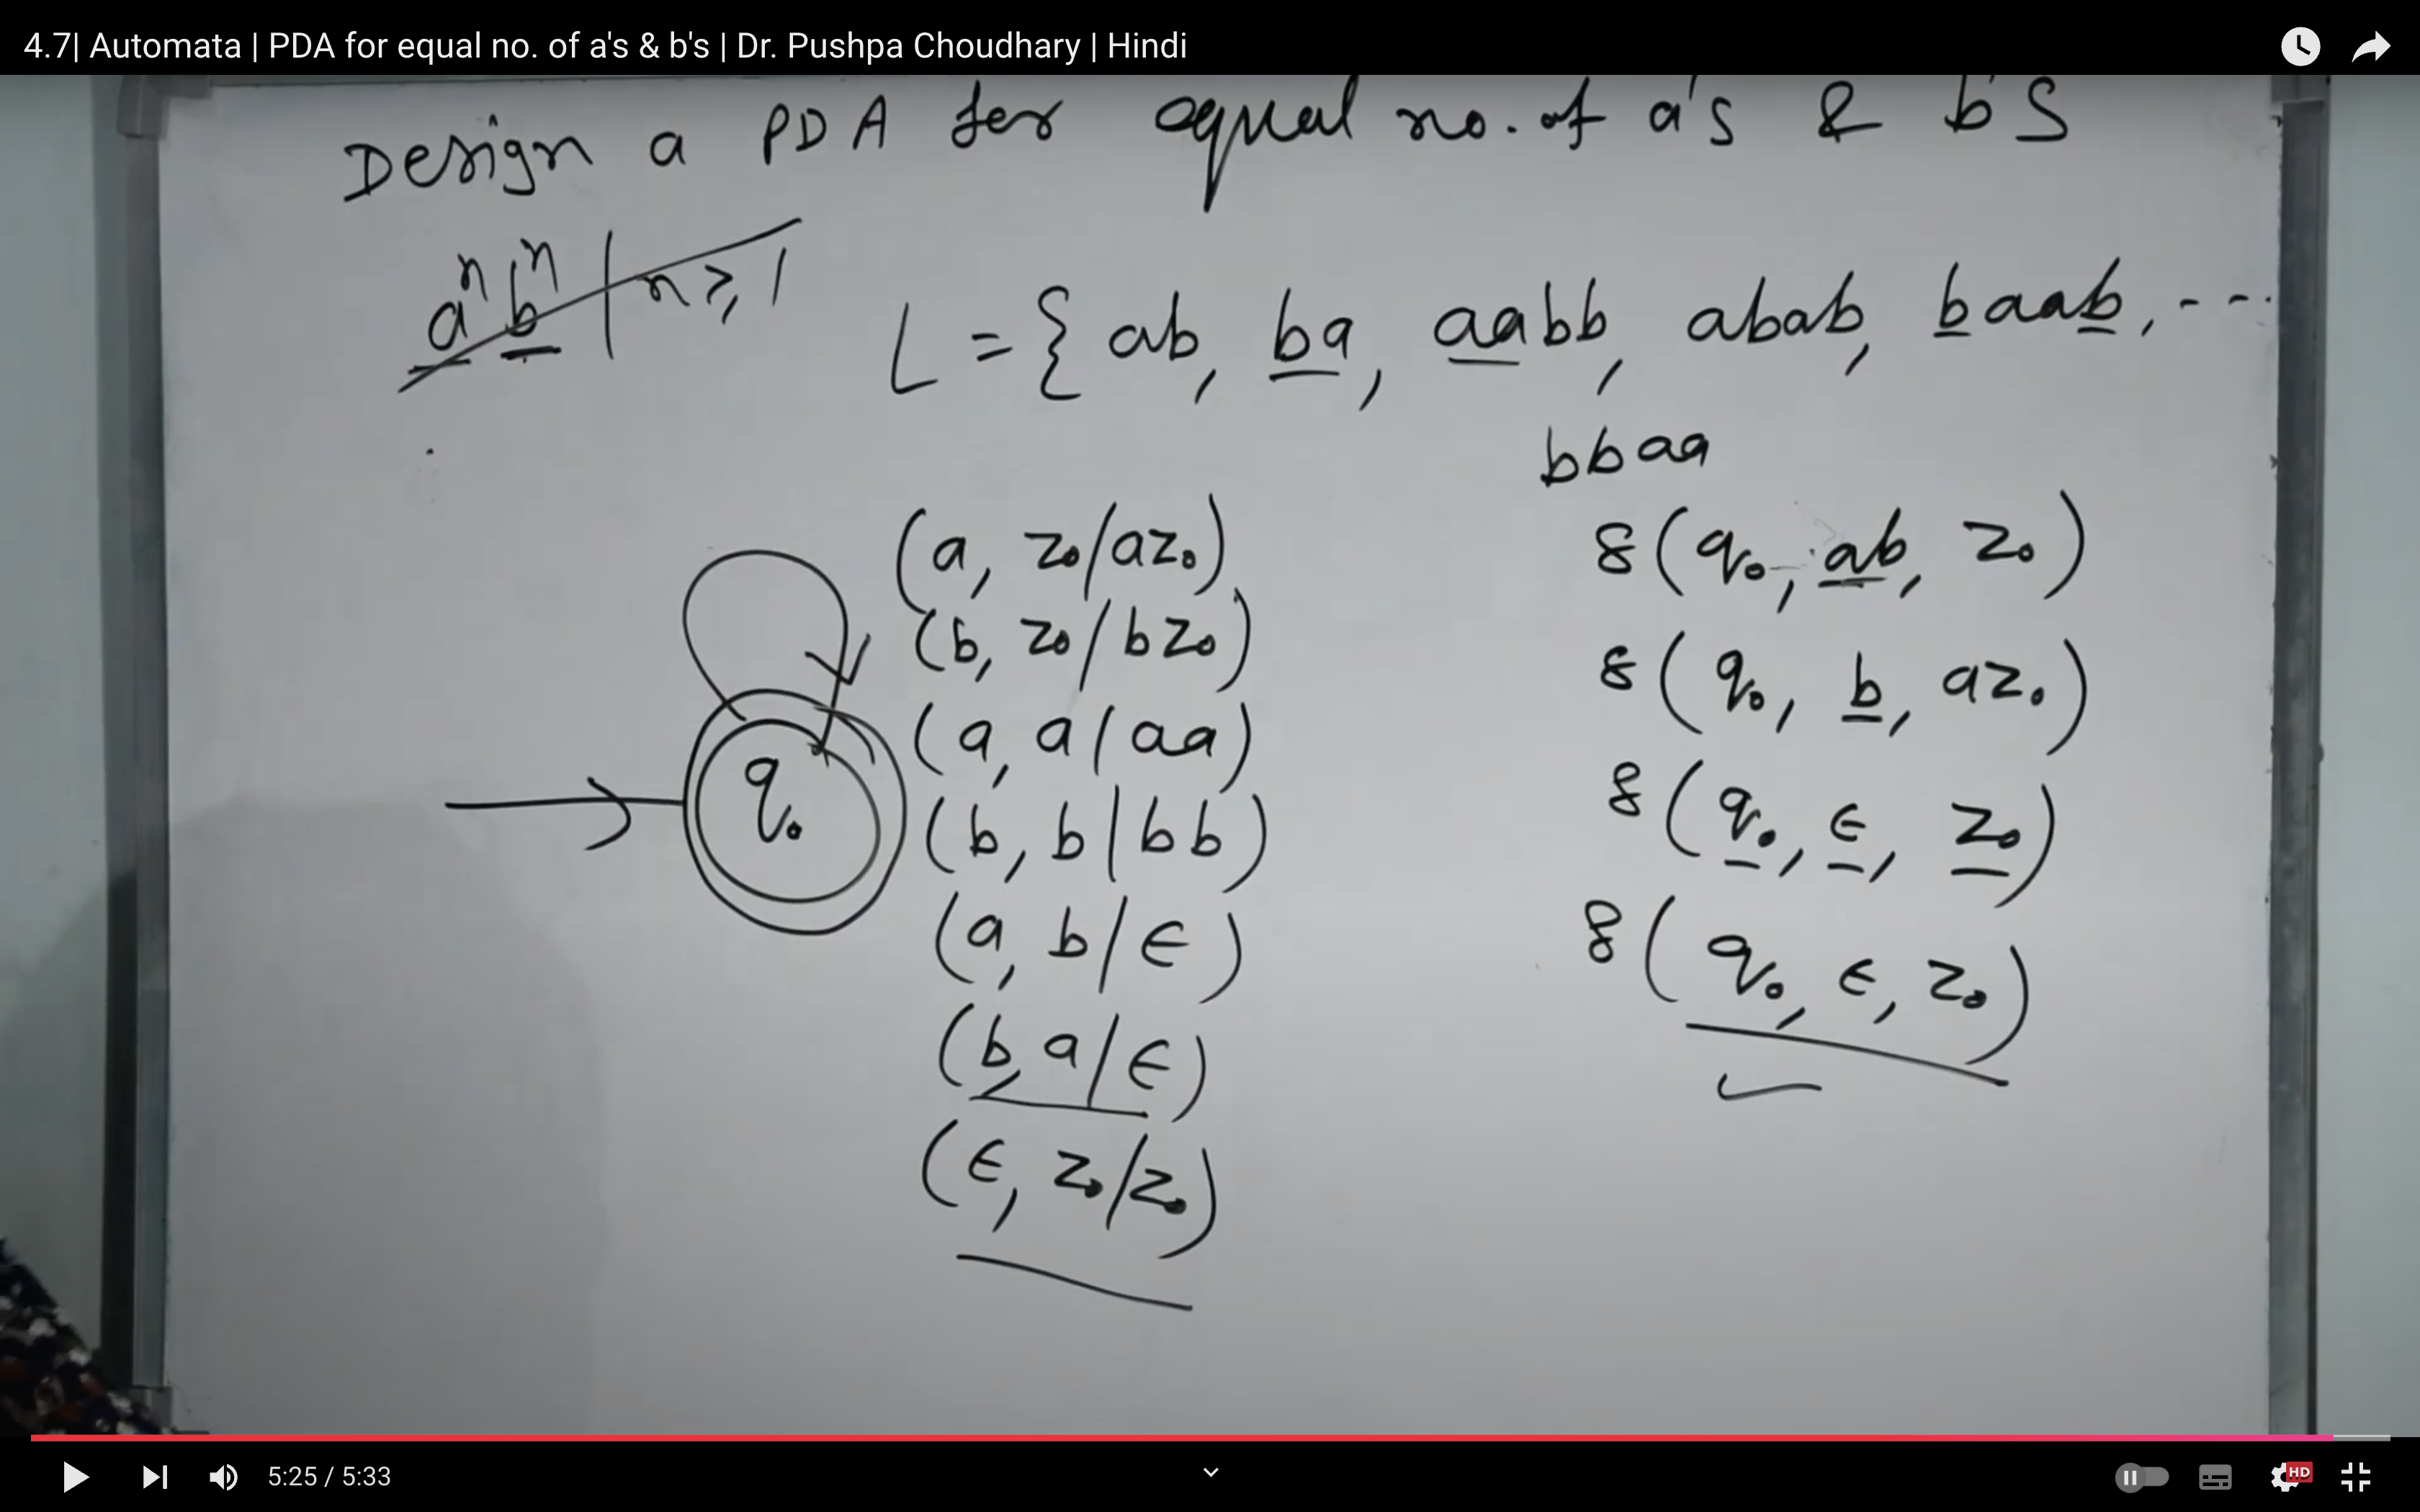 4.7| Automata | PDA for equal no. of a's & b's | Dr. Pushpa Choudhary | Hindi
Design a PDA for equal no. of a's & b's
aⁿbⁿ | n ≥ 1
L = { ab, ba, aabb, abab, baab, ---
bbaa
(a, z₀/az₀)
(b, z₀/bz₀)
(a, a/aa)
(b, b/bb)
(a, b/ε)
(b, a/ε)
(ε, z₀/z₀)
q₀
δ(q₀, ab, z₀)
δ(q₀, b, az₀)
δ(q₀, ε, z₀)
δ(q₀, ε, z₀)
5:25 / 5:33
HD